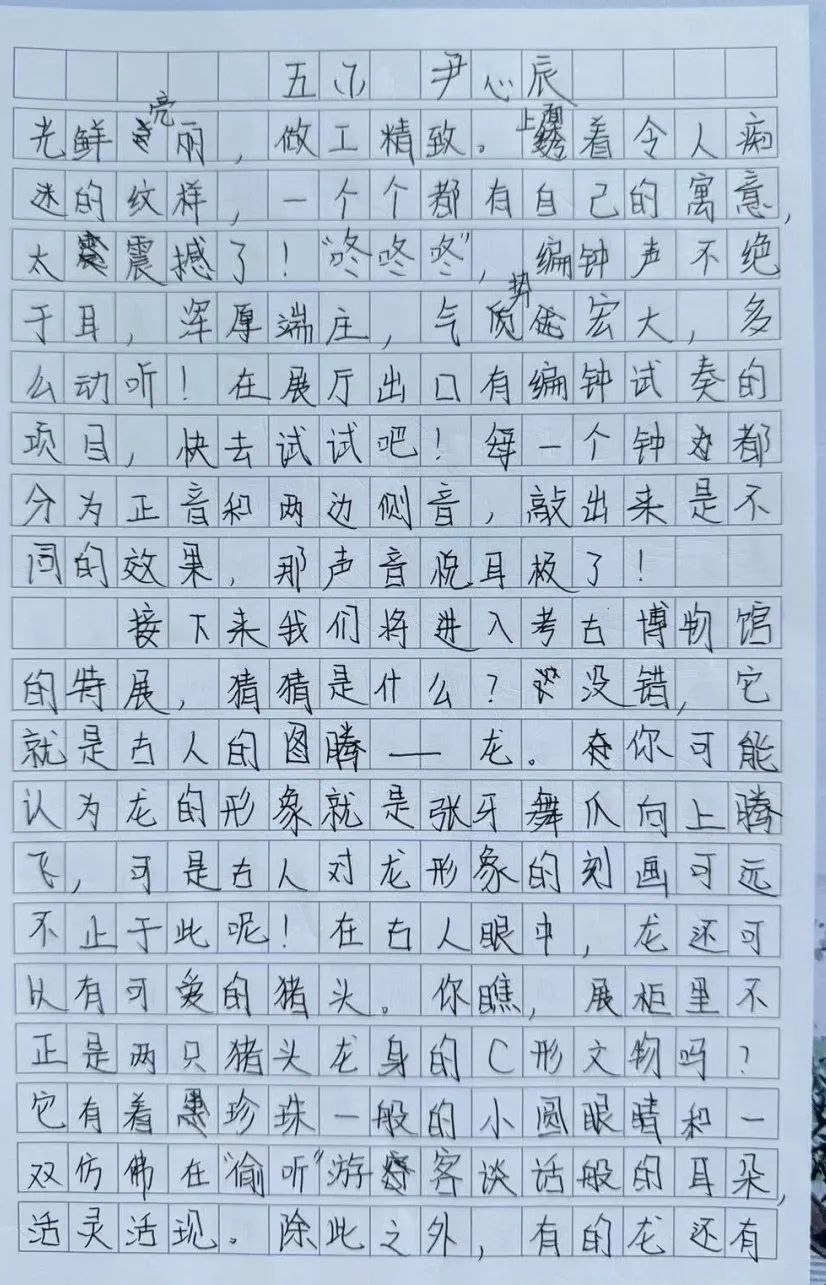 五(1) 尹心辰
光鲜亮丽，做工精致。上面绣着令人痴
迷的纹样，一个个都有自己的寓意，
太震撼了！“咚咚咚”，编钟声不绝
于耳，浑厚端庄，气势宏大，多
么动听！在展厅出口有编钟试奏的
项目，快去试试吧！每一个钟都
分为正音和两边侧音，敲出来是不
同的效果，那声音悦耳极了！
接下来我们将进入考古博物馆
的特展，猜猜是什么？没错，它
就是古人的图腾——龙。你可能
认为龙的形象就是张牙舞爪向上腾
飞，可是古人对龙形象的刻画可远
不止于此呢！在古人眼中，龙还可
以有可爱的猪头。你瞧，展柜里不
正是两只猪头龙身的C形文物吗？
它有着黑珍珠一般的小圆眼睛和一
双仿佛在“偷听”游客谈话般的耳朵，
活灵活现。除此之外，有的龙还有